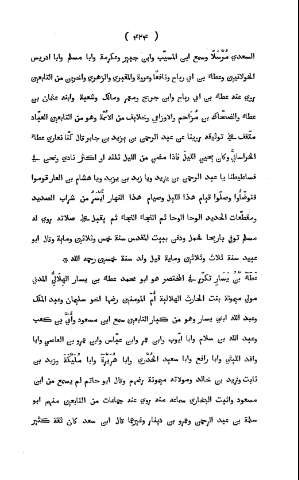 ( ٤٢٤ )
السعدي مُرْسَلًا وسمع ابن المسيّب وابن جبير وعكرمة وابا مسلم وابا ادريس
الخولانيين وعطاء بن ابي رباح ونافعًا وعروة والمقبري والزهري وآخرين من التابعين
روي عنه عطاء بن ابي رباح وابن جريج ومعمر ومالك وشعبة وابنه عثمان بن
عطاء والضحاك بن مُزاحم والاوزاعي وخلايف من الائمة وهو من التابعين العبّاد
متّفق علي توثيقه روينا عن عبد الرحمن بن يزيد بن جابر قال كنّا نغازي عطاء
الخراسانيَّ وكان يحيي الليل فاذا مضي من الليل ثلثه او اكثر نادي ونحن في
فساطيطنا يا عبد الرحمن بن يزيد ويا يزيد بن يزيد ويا هشام بن الغاز قوموا
فتوضّوا وصلّوا قيام هذا الليل وصيام هذا النهار أَيْسَرُ من شراب الصديد
ومقطّعات الحديد الوحا الوحا ثم النجاء النجاء ثم يقبل علي صلاته روي له
مسلم توفي باريحا فحمل ودفن ببيت المقدس سنة خمس وثلاثين وماية وقال ابو
عبيد سنة ثلاث وثلاثين وماية قيل ولد سنة خمسين رحمه الله *
عَطَاء بْن يَسَار تكرّر في المختصر هو ابو محمد عطاء بن يسار الهلاليّ المدني
مولي ميمونة بنت الحارث الهلالية أم المومنين رضها اخو سليمان وعبد الملك
وعبد الله ابني يسار وهو من كبار التابعين سمع ابن مسعود وأُبَيّ بن كعب
وعبد الله بن سلام وابا أيوب وابن عمر وابن عبّاس وابن عمرو بن العاصي وابا
واقد الليثي وابا رافع وابا سعيد الخُدْرِيّ وابا هُرَيْرَة وابا مُلَيْكَة وزيد بن
ثابت وزيد بن خالد ومولاته ميمونة رضهم وقال ابو حاتم لم يسمع من ابن
مسعود واثبت البخاري سماعه منه روي عنه جماعات من التابعين منهم ابو
سلمة بن عبد الرحمن وعمرو بن دينار وغيرهما قال ابن سعد كان ثقة كثير